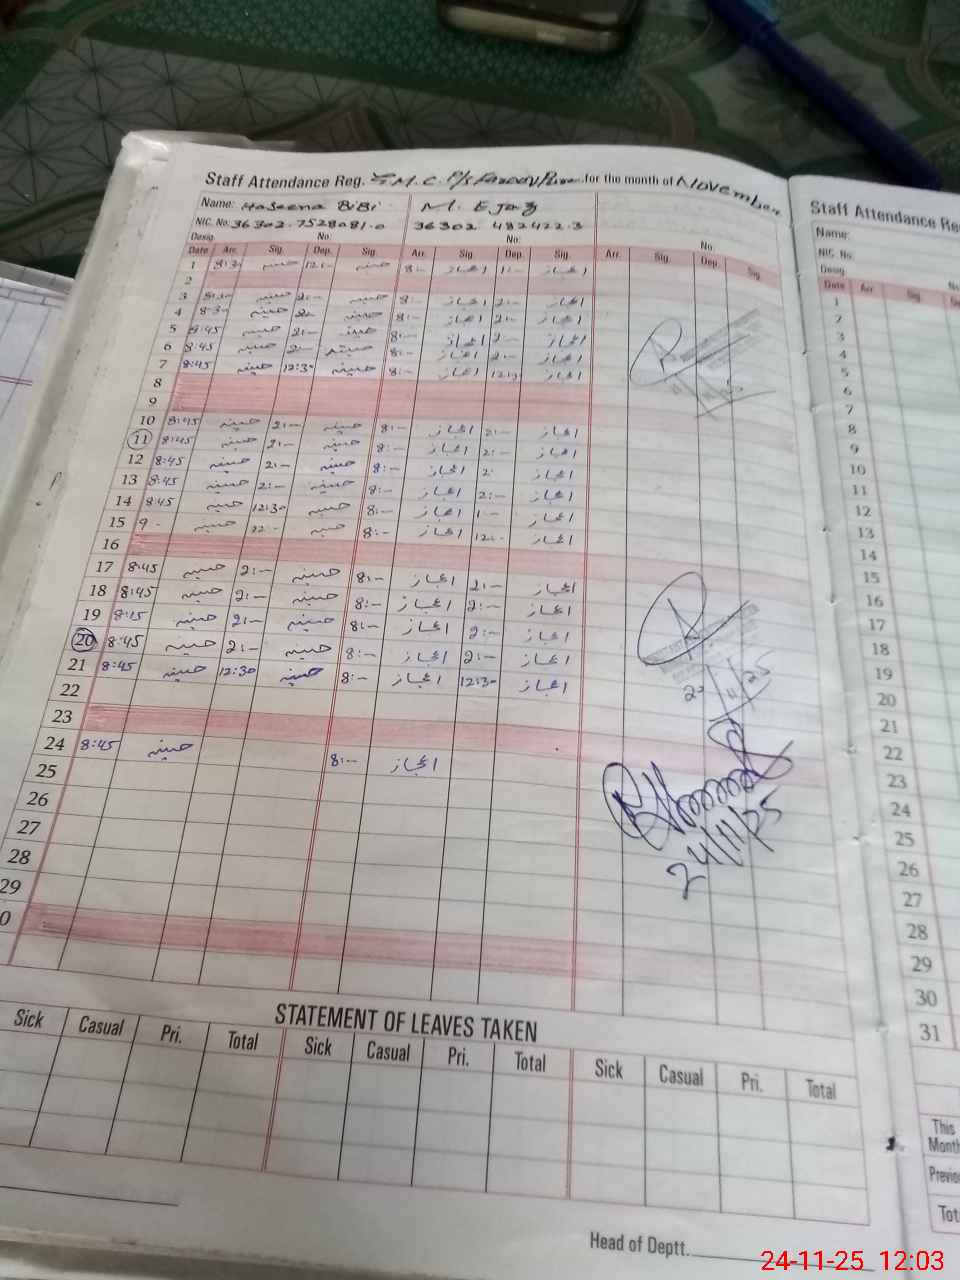 Staff Attendance Reg. M.C. P/S for the month of November
Name: Haseena BiBi M. Ejaz
NIC. No: 36302.7528081.0 36302 482422.3
Desig. No: No: No.
Date Arr. Sig. Dep. Sig. Arr. Sig. Dep. Sig. Arr. Sig. Dep. Sig.
1 8:30 حسینہ 12:- حسینہ 8:- اعجاز 1:- اعجاز
2
3 8:30 حسینہ 2:- حسینہ 8:- اعجاز 2:- اعجاز
4 8:30 حسینہ 2:- حسینہ 8:- اعجاز 2:- اعجاز
5 8:45 حسینہ 2:- حسینہ 8:- اعجاز 2:- اعجاز
6 8:45 حسینہ 2:- حسینہ 8:- اعجاز 2:- اعجاز
7 8:45 حسینہ 12:30 حسینہ 8:- اعجاز 12:30 اعجاز
8
9
10 8:45 حسینہ 2:- حسینہ 8:- اعجاز 2:- اعجاز
11 8:45 حسینہ 2:- حسینہ 8:- اعجاز 2:- اعجاز
12 8:45 حسینہ 2:- حسینہ 8:- اعجاز 2: اعجاز
13 8:45 حسینہ 2:- حسینہ 8:- اعجاز 2:- اعجاز
14 8:45 حسینہ 12:30 حسینہ 8:- اعجاز 1:- اعجاز
15 9 - حسینہ 12:- حسینہ 8:- اعجاز 12:- اعجاز
16
17 8:45 حسینہ 2:- حسینہ 8:- اعجاز 2:- اعجاز
18 8:45 حسینہ 2:- حسینہ 8:- اعجاز 2:- اعجاز
19 8:15 حسینہ 2:- حسینہ 8:- اعجاز 2:- اعجاز
20 8:45 حسینہ 2:- حسینہ 8:- اعجاز 2:- اعجاز
21 8:45 حسینہ 12:30 حسینہ 8:- اعجاز 12:30 اعجاز
22
23
24 8:45 حسینہ 8:- اعجاز
25
26
27
28
29
0
20/11/25
24/11/25
STATEMENT OF LEAVES TAKEN
Sick Casual Pri. Total Sick Casual Pri. Total Sick Casual Pri. Total
Head of Deptt.
Staff Attendance Re
Name:
NIC. No.
Desig.
Date Arr. Sig.
1
2
3
4
5
6
7
8
9
10
11
12
13
14
15
16
17
18
19
20
21
22
23
24
25
26
27
28
29
30
31
This
Month
Previo
Tot
24-11-25 12:03